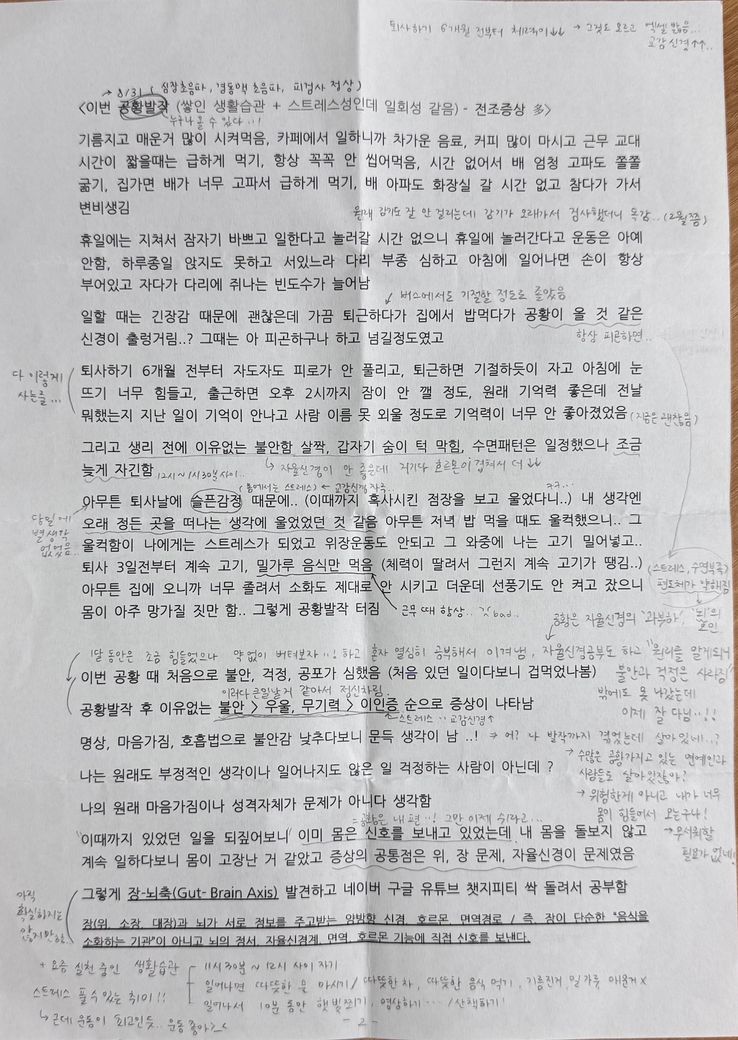 퇴사하기 6개월 전부터 체력이↓↓ → 그것도 모르고
교감신경↑↑..
→ 8/31 ( 심장초음파, 경동맥 초음파, 피검사 정상 )
<이번 공황발작 (쌓인 생활습관 + 스트레스성인데 일회성 같음) - 전조증상 多>
누구나 올 수 있다..!
기름지고 매운거 많이 시켜먹음, 카페에서 일하니까 차가운 음료, 커피 많이 마시고 근무 교대
시간이 짧을때는 급하게 먹기, 항상 꼭꼭 안 씹어먹음, 시간 없어서 배 엄청 고파도 쫄쫄
굶기, 집가면 배가 너무 고파서 급하게 먹기, 배 아파도 화장실 갈 시간 없고 참다가 가서
변비생김
원래 감기도 잘 안 걸리는데 감기가 오래가서 검사했더니 독감.. (2월쯤)
휴일에는 지쳐서 잠자기 바쁘고 일한다고 놀러갈 시간 없으니 휴일에 놀러간다고 운동은 아예
안함, 하루종일 앉지도 못하고 서있느라 다리 부종 심하고 아침에 일어나면 손이 항상
부어있고 자다가 다리에 쥐나는 빈도수가 늘어남
↙ 버스에서도 기절할 정도로 졸았음
일할 때는 긴장감 때문에 괜찮은데 가끔 퇴근하다가 집에서 밥먹다가 공황이 올 것 같은
신경이 출렁거림..? 그때는 아 피곤하구나 하고 넘길정도였고
항상 피곤하면..
다 이렇게
사는줄...
퇴사하기 6개월 전부터 자도자도 피로가 안 풀리고, 퇴근하면 기절하듯이 자고 아침에 눈
뜨기 너무 힘들고, 출근하면 오후 2시까지 잠이 안 깰 정도, 원래 기억력 좋은데 전날
뭐했는지 지난 일이 기억이 안나고 사람 이름 못 외울 정도로 기억력이 너무 안 좋아졌었음 (지금은 괜찮음)
그리고 생리 전에 이유없는 불안함 살짝, 갑자기 숨이 턱 막힘, 수면패턴은 일정했으나 조금
늦게 자긴함 12시~1시30분 사이.. ↳ 자율신경이 안 좋은데 거기다 호르몬이 겹쳐서 더↓↓
(몸에서는 스트레스) ← 교감신경 자극.. ㅋㅋ..
당일에
별생각
없었음..
아무튼 퇴사날에 슬픈감정 때문에.. (이때까지 혹사시킨 점장을 보고 울었다니..) 내 생각엔
오래 정든 곳을 떠나는 생각에 울었었던 것 같음 아무튼 저녁 밥 먹을 때도 울컥했으니.. 그
울컥함이 나에게는 스트레스가 되었고 위장운동도 안되고 그 와중에 나는 고기 밀어넣고..
퇴사 3일전부터 계속 고기, 밀가루 음식만 먹음 (체력이 딸려서 그런지 계속 고기가 땡김..)
아무튼 집에 오니까 너무 졸려서 소화도 제대로 안 시키고 더운데 선풍기도 안 켜고 잤으니
몸이 아주 망가질 짓만 함.. 그렇게 공황발작 터짐
근무 때 항상.. 것 bad..
(스트레스, 수면부족)
편도체가 약해짐
공황은 자율신경의 '과부하', '뇌'의 오인
1달 동안은 조금 힘들었으나 약없이 버텨보자..! 하고 혼자 열심히 공부해서 이겨냄, 자율신경공부도 하고 "원인을 알게되니
불안과 걱정은 사라짐"
이번 공황 때 처음으로 불안, 걱정, 공포가 심했음 (처음 있던 일이다보니 겁먹었나봄)
밖에도 못 나갔는데
이제 잘 다님..!!
이러다 큰일날거 같아서 정신차림
공황발작 후 이유없는 불안 > 우울, 무기력 > 이인증 순으로 증상이 나타남
↳ 스트레스.. 교감신경↑
명상, 마음가짐, 호흡법으로 불안감 낮추다보니 문득 생각이 남 ..! ⇒ 어? 나 발작까지 겪었는데 살아있네..?
→ 수많은 공황가지고 있는 연예인과
사람들도 살아있잖아?
나는 원래도 부정적인 생각이나 일어나지도 않은 일 걱정하는 사람이 아닌데 ?
→ 위험한게 아니고 내가 너무
몸이 힘들어서 오는구나!
나의 원래 마음가짐이나 성격자체가 문제가 아니다 생각함
= 공황은 내 편..! 그만 이제 쉬라고...
→ 무서워할
필요가 없네!
"이때까지 있었던 일을 되짚어보니" 이미 몸은 신호를 보내고 있었는데 내 몸을 돌보지 않고
계속 일하다보니 몸이 고장난 거 같았고 증상의 공통점은 위, 장 문제, 자율신경이 문제였음
아직
확실하지는
않지만..
그렇게 장-뇌축(Gut- Brain Axis) 발견하고 네이버 구글 유튜브 챗지피티 싹 돌려서 공부함
장(위, 소장, 대장)과 뇌가 서로 정보를 주고받는 양방향 신경, 호르몬, 면역경로 / 즉, 장이 단순한 "음식을
소화하는 기관"이 아니고 뇌의 정서, 자율신경계, 면역, 호르몬 기능에 직접 신호를 보낸다.
+ 요즘 실천 중인 생활습관
11시 30분 ~ 12시 사이 자기
일어나면 따뜻한 물 마시기 / 따뜻한 차, 따뜻한 음식 먹기, 기름진거, 밀가루, 매운거 X
일어나서 10분 동안 햇빛쬐기, 명상하기 … / 산책하기!
스트레스 풀 수 있는 취미!!
↳ 근데 운동이 최고인듯.. 운동 좋아
- 2 -